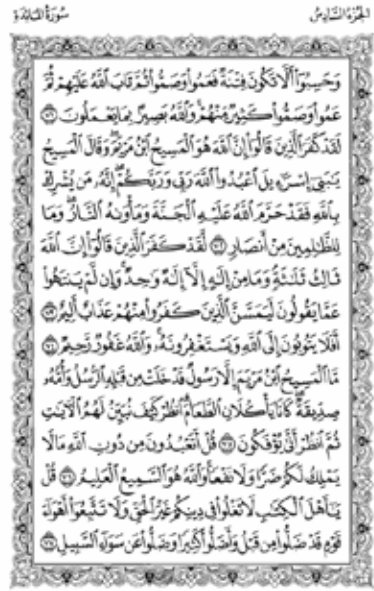 الجُزءُ السَّادِسُ
سُورَةُ المَائِدَةِ
وَحَسِبُوٓاْ أَلَّا تَكُونَ فِتۡنَةٞ فَعَمُواْ وَصَمُّواْ ثُمَّ تَابَ ٱللَّهُ عَلَيۡهِمۡ ثُمَّ
عَمُواْ وَصَمُّواْ كَثِيرٞ مِّنۡهُمۡۚ وَٱللَّهُ بَصِيرُۢ بِمَا يَعۡمَلُونَ ٧١
لَقَدۡ كَفَرَ ٱلَّذِينَ قَالُوٓاْ إِنَّ ٱللَّهَ هُوَ ٱلۡمَسِيحُ ٱبۡنُ مَرۡيَمَۖ وَقَالَ ٱلۡمَسِيحُ
يَٰبَنِيٓ إِسۡرَٰٓءِيلَ ٱعۡبُدُواْ ٱللَّهَ رَبِّي وَرَبَّكُمۡۖ إِنَّهُۥ مَن يُشۡرِكۡ
بِٱللَّهِ فَقَدۡ حَرَّمَ ٱللَّهُ عَلَيۡهِ ٱلۡجَنَّةَ وَمَأۡوَىٰهُ ٱلنَّارُۖ وَمَا
لِلظَّٰلِمِينَ مِنۡ أَنصَارٖ ٧٢ لَّقَدۡ كَفَرَ ٱلَّذِينَ قَالُوٓاْ إِنَّ ٱللَّهَ
ثَالِثُ ثَلَٰثَةٖۘ وَمَا مِنۡ إِلَٰهٍ إِلَّآ إِلَٰهٞ وَٰحِدٞۚ وَإِن لَّمۡ يَنتَهُواْ
عَمَّا يَقُولُونَ لَيَمَسَّنَّ ٱلَّذِينَ كَفَرُواْ مِنۡهُمۡ عَذَابٌ أَلِيمٌ ٧٣
أَفَلَا يَتُوبُونَ إِلَى ٱللَّهِ وَيَسۡتَغۡفِرُونَهُۥۚ وَٱللَّهُ غَفُورٞ رَّحِيمٞ ٧٤
مَّا ٱلۡمَسِيحُ ٱبۡنُ مَرۡيَمَ إِلَّا رَسُولٞ قَدۡ خَلَتۡ مِن قَبۡلِهِ ٱلرُّسُلُ وَأُمُّهُۥ
صِدِّيقَةٞۖ كَانَا يَأۡكُلَانِ ٱلطَّعَامَۗ ٱنظُرۡ كَيۡفَ نُبَيِّنُ لَهُمُ ٱلۡأٓيَٰتِ
ثُمَّ ٱنظُرۡ أَنَّىٰ يُؤۡفَكُونَ ٧٥ قُلۡ أَتَعۡبُدُونَ مِن دُونِ ٱللَّهِ مَا لَا
يَمۡلِكُ لَكُمۡ ضَرّٗا وَلَا نَفۡعٗاۚ وَٱللَّهُ هُوَ ٱلسَّمِيعُ ٱلۡعَلِيمُ ٧٦ قُلۡ
يَٰٓأَهۡلَ ٱلۡكِتَٰبِ لَا تَغۡلُواْ فِي دِينِكُمۡ غَيۡرَ ٱلۡحَقِّ وَلَا تَتَّبِعُوٓاْ أَهۡوَآءَ
قَوۡمٖ قَدۡ ضَلُّواْ مِن قَبۡلُ وَأَضَلُّواْ كَثِيرٗا وَضَلُّواْ عَن سَوَآءِ ٱلسَّبِيلِ ٧٧